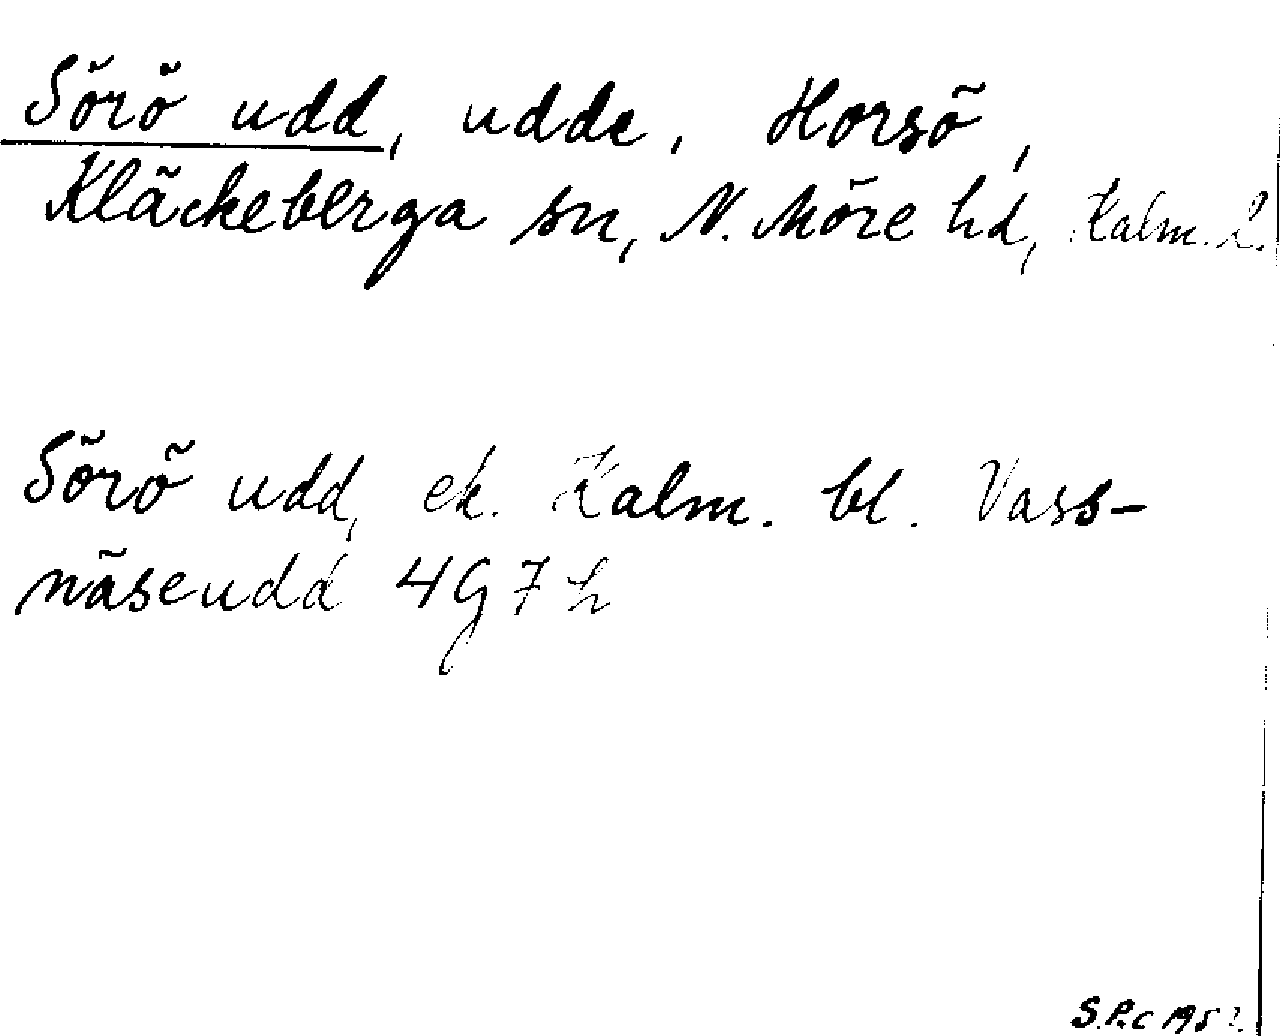 Sörö udd, udde, Horsö,
Kläckeberga sn, N. Möre hd, Kalm. l.
Sörö udd, ek. Kalm. bl. Vass-
näseudd 4G7h